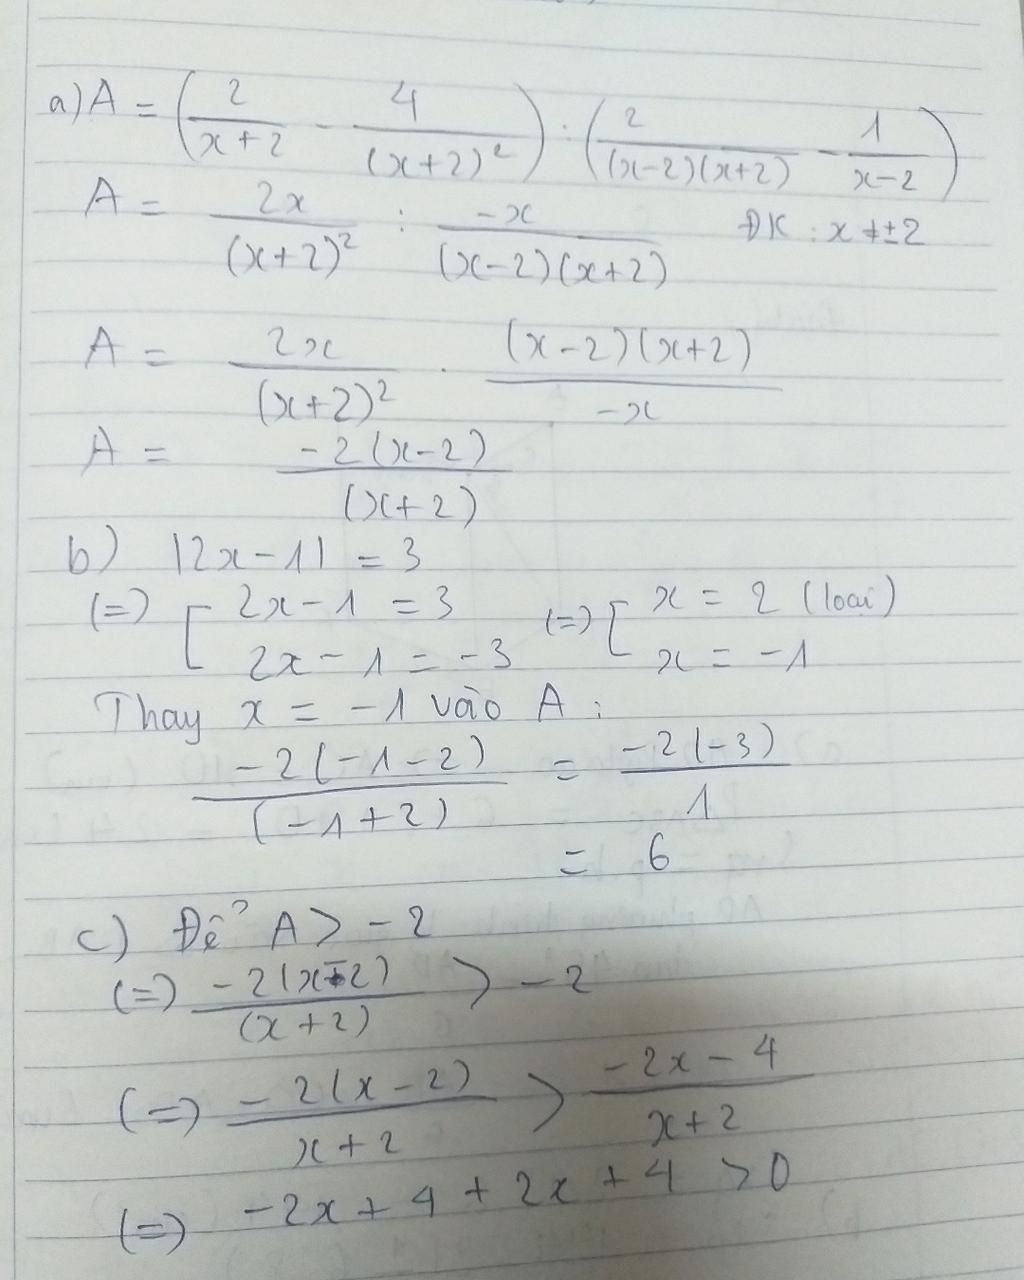 a) A = (2/(x+2) - 4/(x+2)²) : (2/((x-2)(x+2)) - 1/(x-2))
A = 2x/(x+2)² : -x/((x-2)(x+2)) ĐK : x ≠ ±2
A = 2x/(x+2)² . (x-2)(x+2)/-x
A = -2(x-2)/(x+2)
b) |2x-1| = 3
(=) [ 2x-1 = 3 (=) [ x = 2 (loại)
2x-1 = -3 x = -1
Thay x = -1 vào A :
-2(-1-2)/(-1+2) = -2(-3)/1
= 6
c) Để A > -2
(=) -2(x-2)/(x+2) > -2
(=) -2(x-2)/(x+2) > (-2x-4)/(x+2)
(=) -2x + 4 + 2x + 4 > 0